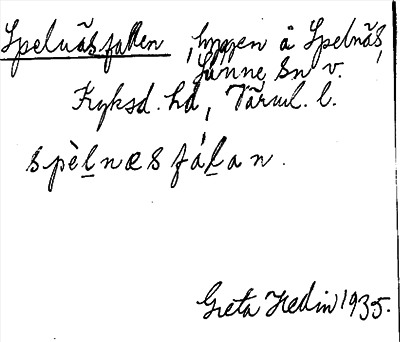 Spelnäsfallen, byggen å Spelnäs,
Lunne sn v.
Kyksd. hd, Värml. l.
spèlnæsfálan.
Greta Hedin 1935.